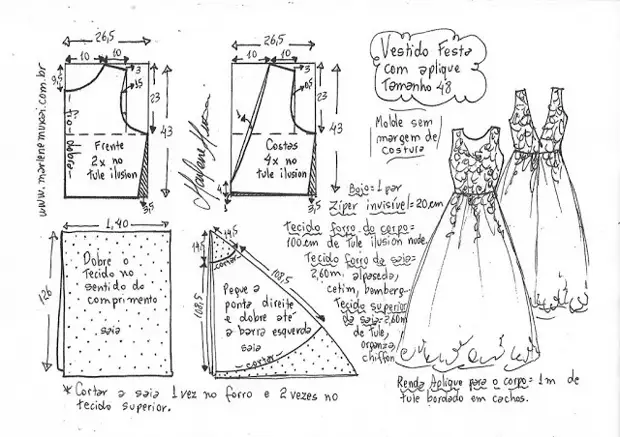 26,5
10
10
3
9,5
15
23
43
fio - dobra
Frente
2x no
tule ilusion
3,5
www.marlenemukai.com.br
26,5
10
10
3
15
23
43
Costas
4x no
tule ilusion
4
3,5
Marlene Mukai
Vestido Festa
com aplique
Tamanho 48
Molde sem
margem de
costura
Bojo=1 par
Zíper invisível=20,cm
Tecido forro do corpo=
100.cm de tule ilusion nude.
Tecido forro da saia=
2,60m. alpaseda,
cetim, bemberg...
Tecido superior
da saia=2,60m
de tule,
organza,
chiffon
1,40
126
Dobre o
Tecido no
sentido do
comprimento
saia
14,5
14,5
cortar
108,5
108,5
Pegue a
ponta direite
e dobre até
a barra esquerda
saia
cortar
Renda Aplique para o corpo=1m de
tule bordado em cachos.
* Cortar a saia 1 vez no forro e 2 vezes no
tecido superior.